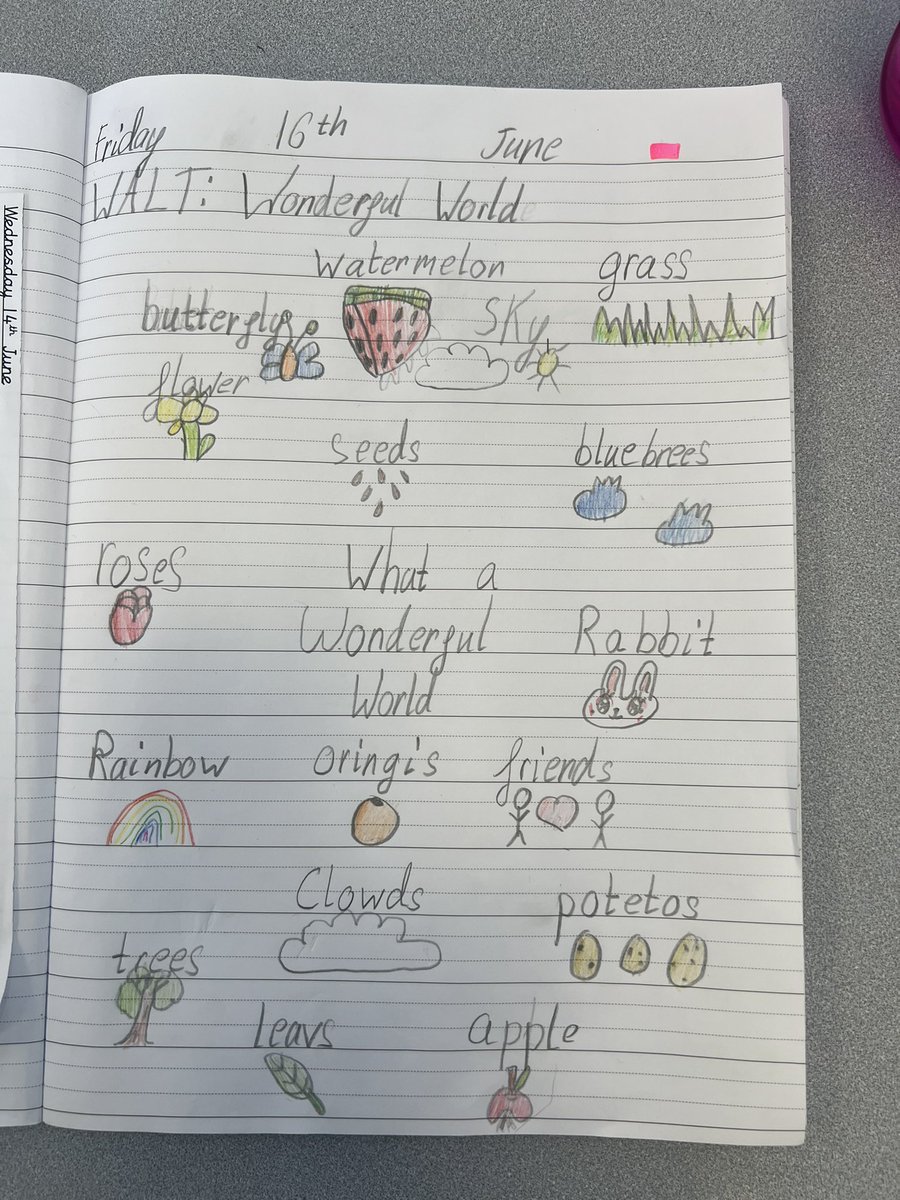 Wednesday 14th June
Friday 16th June
WALT: Wonderful World
watermelon grass
butterfly Sky
flower
seeds bluebrees
roses What a
Wonderful Rabbit
World
Rainbow oringis friends
Clowds potetos
trees
leavs apple